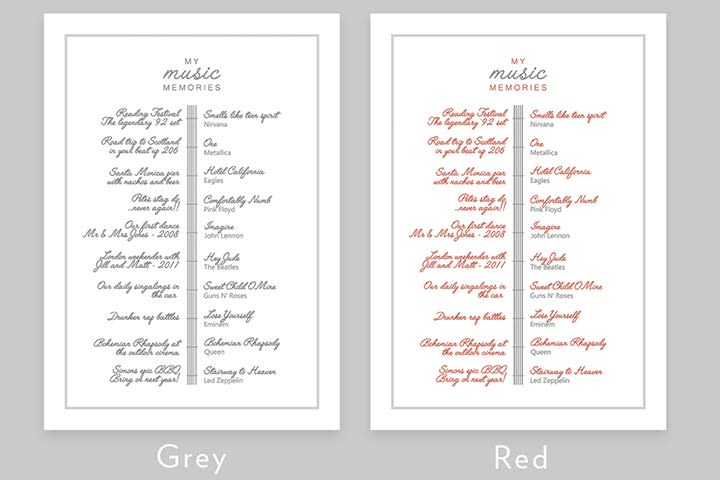 MY
music
MEMORIES
Reading Festival
The legendary 92 set
Smells like teen spirit
Nirvana
Road trip to Scotland
in your beat up 206
One
Metallica
Santa Monica pier
with nachos and beer
Hotel California
Eagles
Petes stag do
...never again!!
Comfortably Numb
Pink Floyd
Our first dance
Mr & Mrs Jones - 2008
Imagine
John Lennon
London weekender with
Jill and Matt - 2011
Hey Jude
The Beatles
Our daily singalongs in
the car
Sweet Child O Mine
Guns N' Roses
Drunken rap battles
Lose Yourself
Eminem
Bohemian Rhapsody at
the outdoor cinema
Bohemian Rhapsody
Queen
Simons epic BBQ
Bring on next year!
Stairway to Heaven
Led Zeppelin
Grey
MY
music
MEMORIES
Reading Festival
The legendary 92 set
Smells like teen spirit
Nirvana
Road trip to Scotland
in your beat up 206
One
Metallica
Santa Monica pier
with nachos and beer
Hotel California
Eagles
Petes stag do
...never again!!
Comfortably Numb
Pink Floyd
Our first dance
Mr & Mrs Jones - 2008
Imagine
John Lennon
London weekender with
Jill and Matt - 2011
Hey Jude
The Beatles
Our daily singalongs in
the car
Sweet Child O Mine
Guns N' Roses
Drunken rap battles
Lose Yourself
Eminem
Bohemian Rhapsody at
the outdoor cinema
Bohemian Rhapsody
Queen
Simons epic BBQ
Bring on next year!
Stairway to Heaven
Led Zeppelin
Red